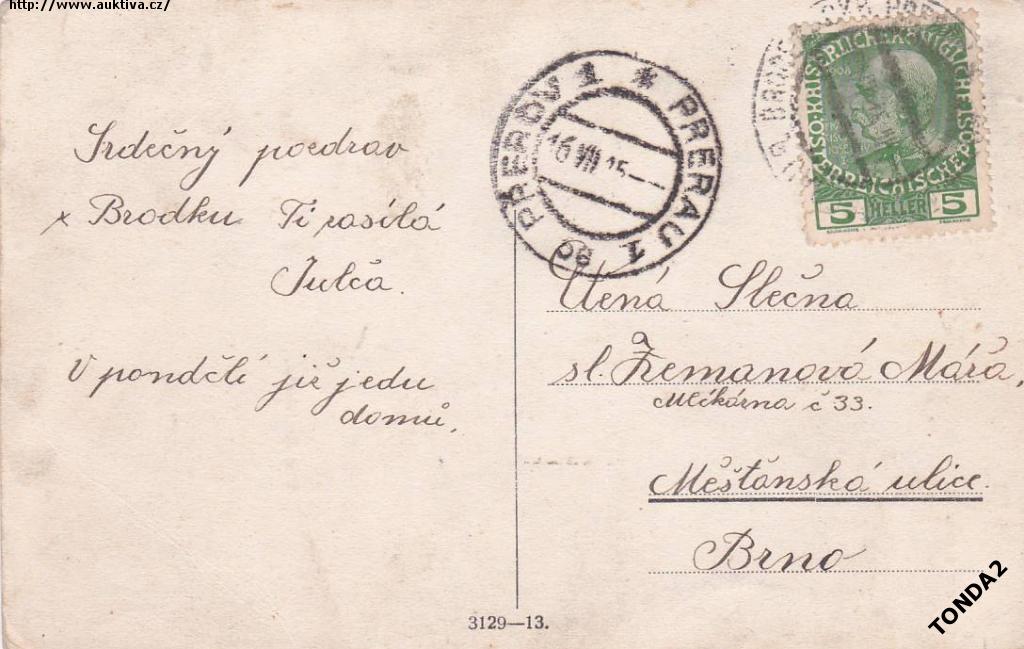 http://www.auktiva.cz/
Srdečný pozdrav
z Brodku Ti zasílá
Julča.
V pondělí již jedu
domů.
PŘEROV 1 * PRERAU 1
16 VII 15
9c
KAISERLICHE KÖNIGLICHE
ÖSTERREICHISCHE POST
1908
5 HELLER 5
Ctená Slečna
sl. Zemanová Mářa,
Mlékárna č 33.
Měšťanská ulice.
Brno
3129—13.
TONDA2